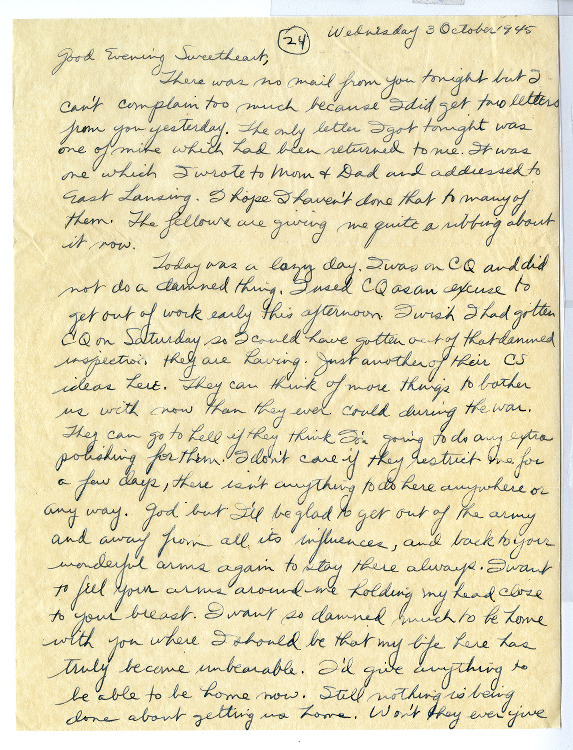 24
Wednesday 3 October 1945
Good Evening Sweetheart,
There was no mail from you tonight but I
can't complain too much because I did get two letters
from you yesterday. The only letter I got tonight was
one of mine which had been returned to me. It was
one which I wrote to Mom & Dad and addressed to
East Lansing. I hope I haven't done that to many of
them. The fellows are giving me quite a ribbing about
it now.
Today was a lazy day. I was on CQ and did
not do a damned thing. I used CQ as an excuse to
get out of work early this afternoon I wish I had gotten
CQ on Saturday so I could have gotten out of that damned
inspection they are having. Just another of their CS
ideas here. They can think of more things to bother
us with now than they ever could during the war.
They can go to hell if they think I'm going to do any extra
polishing for them. I don't care if they restrict me for
a few days, there isn't anything to do here anywhere or
any way. God but I'll be glad to get out of the army
and away from all its influences, and back to your
wonderful arms again to stay there always. I want
to feel your arms around me holding my head close
to your breast. I want so damned much to be home
with you where I should be that my life here has
truly become unbearable. I'd give anything to
be able to be home now. Still nothing is being
done about getting us home. Won't they ever give